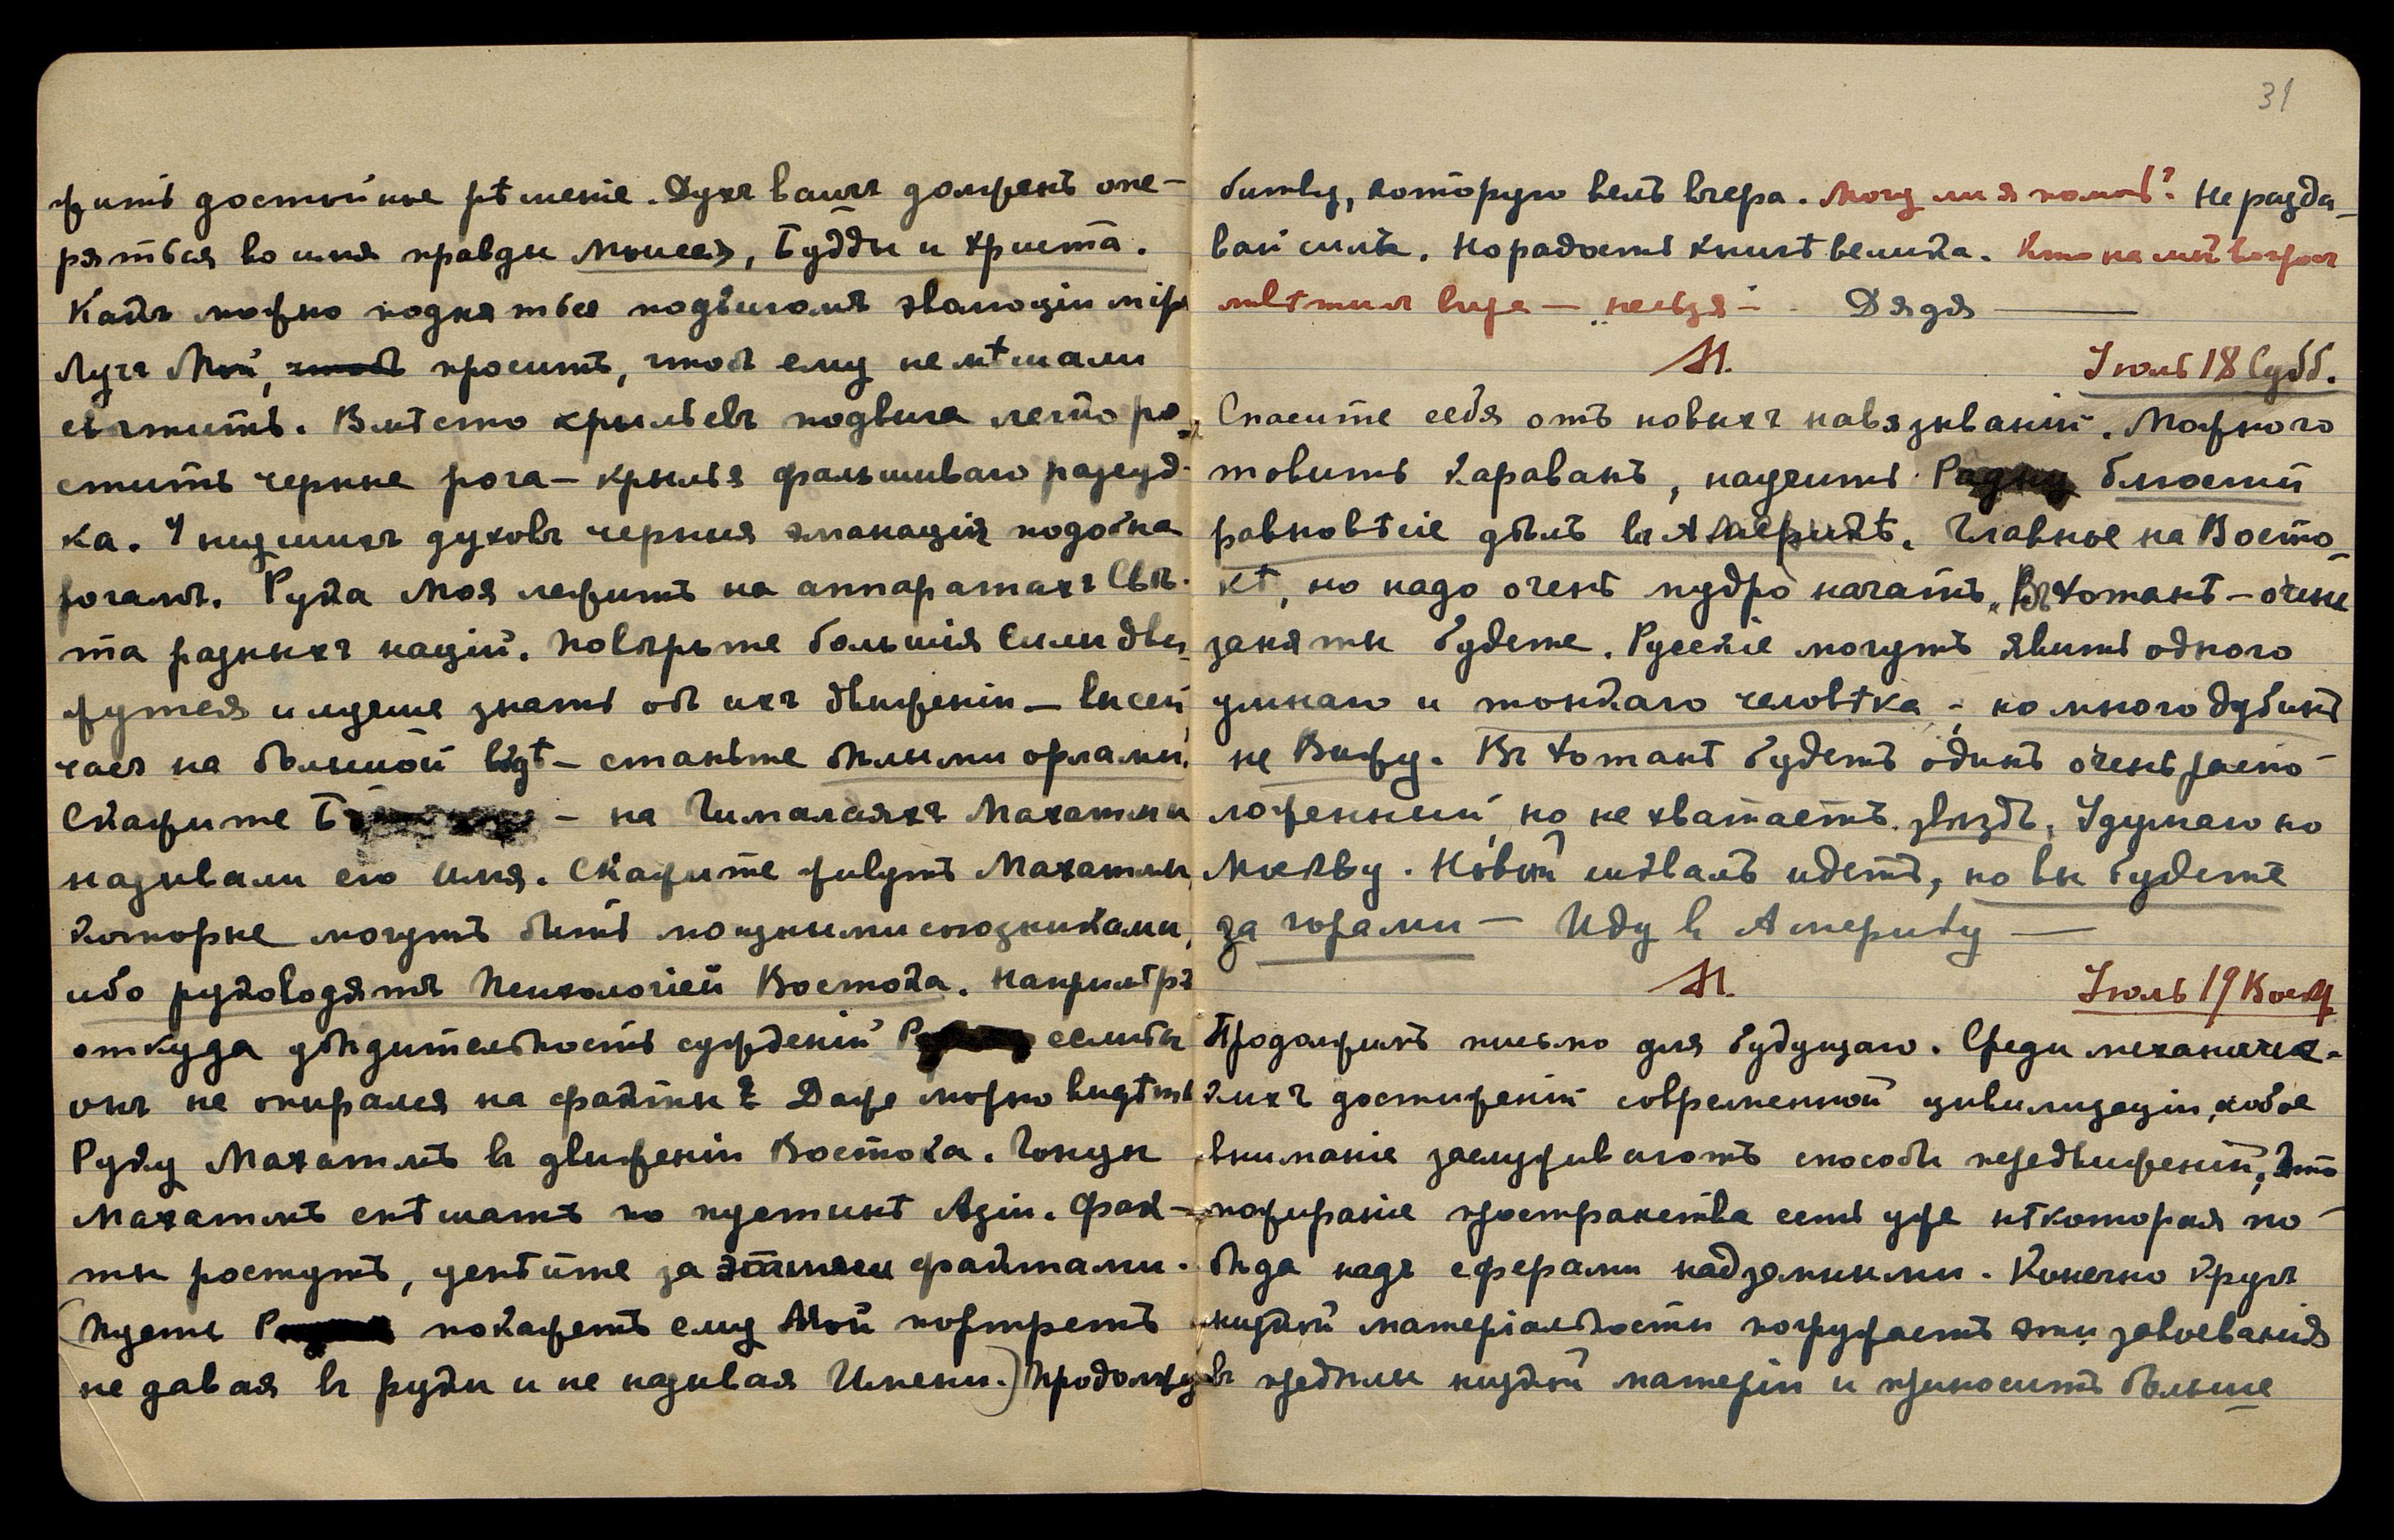 жить достойное рѣшеніе. Духъ вашъ долженъ опе-
ряться во имя правды Моисея, Будды и Христа.
Какъ можно подняться подвигомъ эволюціи міра
Лучъ Мой, чтобъ проситъ, чтобъ ему не мѣшали
свѣтить. Вмѣсто крыльевъ подвига легко ро-
стить черные рога – крылья фальшиваго разсуд-
ка. У низшихъ духовъ черныя эманаціи подобна
рогамъ. Рука Моя лежитъ на аппаратахъ Свѣ-
та разныхъ націй. Повѣрьте большія Силы дви-
жутся и лучше знать объ ихъ движеніи –
часъ на большой – станьте бѣлыми орлами.
Скажите – на Гималаяхъ Махатмы
называли его имя. Скажите живутъ Махатмы,
которые могутъ быть мощными союзниками,
ибо руководятъ Психологіей Востока. Напримѣръ
откуда убѣдительность сужденій если бы
онъ не опирался на факты? Даже можно видѣть
Руку Махатмъ въ движеніи Востока. Гонцы
Махатмъ спѣшатъ по пустынѣ Азіи. Фак-
ты ростутъ, успѣйте за этими фактами.
(Пусть покажетъ ему Мой портретъ
не давая въ руки и не называя Имени.) Продолжу
31
битву, которую велъ вчера. Могу ли я помочь? Не разда-
вай силы. Но радость книгѣ велика. Кто на мой вопросъ
отвѣтилъ вчера – „нельзя" – Дядя —
М.
Іюль 18 Субб.
Спасите себя отъ новыхъ навязываній. Можно го-
товить караванъ, научить блюсти
равновѣсіе дѣлъ въ Америкѣ. Главное на Восто-
кѣ, но надо очень мудро начать. Въ Хотанѣ – очень
заняты будете. Русскіе могутъ явить одного
умнаго и тонкаго человѣка; но много дубинъ
не Вижу. Въ Хотанѣ будетъ одинъ очень распо-
ложенный, но не хватаетъ звѣздъ. Я думаю по
Москву. Новый шквалъ идетъ, но вы будете
за горами – Иду въ Америку —
М.
Іюль 19 Воскр
Продолжимъ письмо для будущаго. Среди механичес-
кихъ достиженій современной цивилизаціи, особое
вниманіе заслуживаютъ способы передвиженій. Это
пожираніе пространства есть уже нѣкоторая по-
бѣда надъ сферами надземными. Конечно кругъ
низкой матеріальности погружаетъ эти завоеванія
въ предѣлы низкой матеріи и приноситъ больше